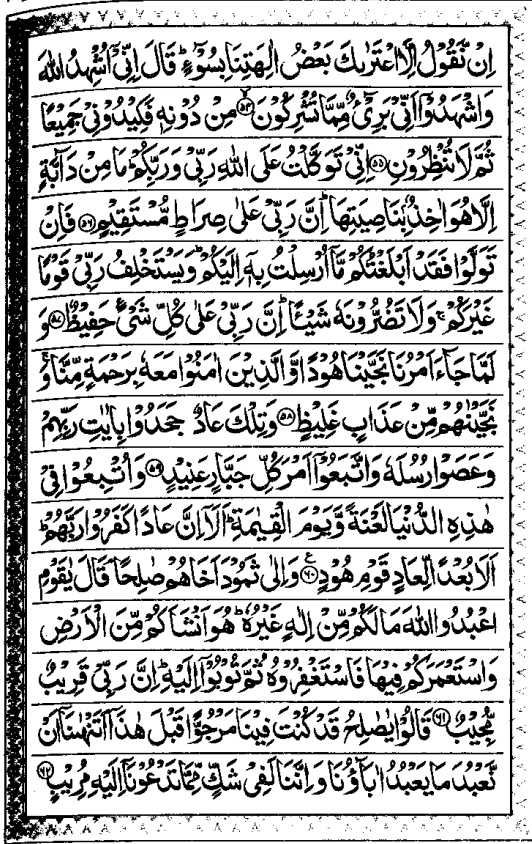 اِنۡ نَّقُوۡلُ اِلَّا اعۡتَرٰٮكَ بَعۡضُ اٰلِهَتِنَا بِسُوۡٓءٍ‌ ؕ قَالَ اِنِّىۡۤ اُشۡهِدُ اللّٰهَ
وَاشۡهَدُوۡۤا اَنِّىۡ بَرِىۡٓءٌ مِّمَّا تُشۡرِكُوۡنَ ۙ‏﴿۵۴﴾ مِنۡ دُوۡنِهٖ‌ فَكِيۡدُوۡنِىۡ جَمِيۡعًا
ثُمَّ لَا تُنۡظِرُوۡنِ‏﴿۵۵﴾ اِنِّىۡ تَوَكَّلۡتُ عَلَى اللّٰهِ رَبِّىۡ وَرَبِّكُمۡ ‌ؕ مَا مِنۡ دَآ بَّةٍ
اِلَّا هُوَ اٰخِذٌۢ بِنَاصِيَتِهَا ؕ اِنَّ رَبِّىۡ عَلٰى صِرَاطٍ مُّسۡتَقِيۡمٍ‏﴿۵۶﴾ فَاِنۡ
تَوَلَّوۡا فَقَدۡ اَبۡلَغۡتُكُمۡ مَّاۤ اُرۡسِلۡتُ بِهٖۤ اِلَيۡكُمۡ‌ ؕ وَيَسۡتَخۡلِفُ رَبِّىۡ قَوۡمًا
غَيۡرَكُمۡ‌ۚ وَلَا تَضُرُّوۡنَهٗ شَيۡـًٔـا ؕ اِنَّ رَبِّىۡ عَلٰى كُلِّ شَىۡءٍ حَفِيۡظٌ‏﴿۵۷﴾ وَ
لَمَّا جَآءَ اَمۡرُنَا نَجَّيۡنَا هُوۡدًا وَّالَّذِيۡنَ اٰمَنُوۡا مَعَهٗ بِرَحۡمَةٍ مِّنَّا ۚ وَ
نَجَّيۡنٰهُمۡ مِّنۡ عَذَابٍ غَلِيۡظٍ‏﴿۵۸﴾ وَتِلۡكَ عَادٌ‌ جَحَدُوۡا بِاٰيٰتِ رَبِّهِمۡ
وَعَصَوۡا رُسُلَهٗ وَاتَّبَعُوۡۤا اَمۡرَ كُلِّ جَبَّارٍ عَنِيۡدٍ‏﴿۵۹﴾ وَاُتۡبِعُوۡا فِىۡ
هٰذِهِ الدُّنۡيَا لَعۡنَةً وَّيَوۡمَ الۡقِيٰمَةِ‌ ؕ اَلَاۤ اِنَّ عَادًا كَفَرُوۡا رَبَّهُمۡ‌ ؕ
اَلَا بُعۡدًا لِّعَادٍ قَوۡمِ هُوۡدٍ‏﴿۶۰﴾ ع وَاِلٰى ثَمُوۡدَ اَخَاهُمۡ صٰلِحًا‌ۘ قَالَ يٰقَوۡمِ
اعۡبُدُوا اللّٰهَ مَا لَكُمۡ مِّنۡ اِلٰهٍ غَيۡرُهٗ‌ ؕ هُوَ اَنۡشَاَكُمۡ مِّنَ الۡاَرۡضِ
وَاسۡتَعۡمَرَكُمۡ فِيۡهَا فَاسۡتَغۡفِرُوۡهُ ثُمَّ تُوۡبُوۡۤا اِلَيۡهِ‌ ؕ اِنَّ رَبِّىۡ قَرِيۡبٌ
مُّجِيۡبٌ‏﴿۶۱﴾ قَالُوۡا يٰصٰلِحُ قَدۡ كُنۡتَ فِيۡنَا مَرۡجُوًّا قَبۡلَ هٰذَآ اَتَنۡهٰٮنَاۤ اَنۡ
نَّعۡبُدَ مَا يَعۡبُدُ اٰبَآؤُنَا وَاِنَّنَا لَفِىۡ شَكٍّ مِّمَّا تَدۡعُوۡنَاۤ اِلَيۡهِ مُرِيۡبٍ‏﴿۶۲﴾